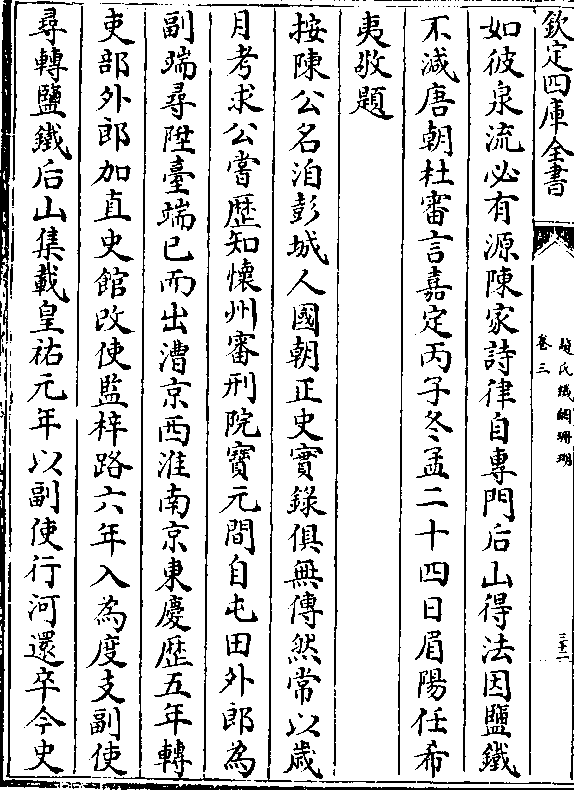 欽定四庫全書
趙氏鐵網珊瑚
卷三
三十二
如彼泉流必有源陳家詩律自專門后山得法因鹽鐵
不減唐朝杜審言嘉定丙子冬孟二十四日眉陽任希
夷敬題
按陳公名洎彭城人國朝正史實錄俱無傳然常以歲
月考求公嘗歴知懷州審刑院寶元間自屯田外郎為
副端尋陞臺端已而出漕京西淮南京東慶歴五年轉
吏部外郎加直史館改使監梓路六年入為度支副使
尋轉鹽鐵后山集載皇祐元年以副使行河還卒今史